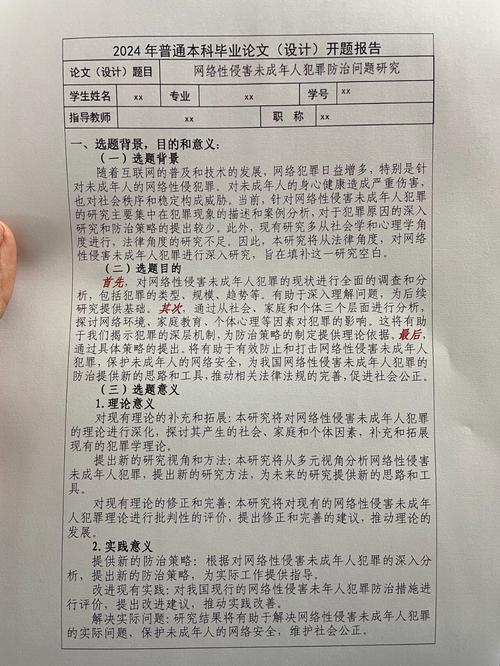 2024 年普通本科毕业论文（设计）开题报告
论文（设计）题目 网络性侵害未成年人犯罪防治问题研究
学生姓名 xx 专业 xx 学号 xx
指导教师 xx 职 称 xx
一、选题背景，目的和意义：
（一）选题背景
随着互联网的普及和技术的发展，网络犯罪日益增多，特别是针
对未成年人的网络性侵犯罪。对未成年人的身心健康造成严重伤害，
也对社会秩序和稳定构成威胁。当前，针对网络性侵害未成年人犯罪
的研究主要集中在犯罪现象的描述和案例分析，对于犯罪原因的深入
研究和防治策略的提出较少。此外，现有研究多从社会学和心理学角
度进行，法律角度的研究不足。因此，本研究将从法律角度，对网络
性侵害未成年人犯罪进行深入研究，旨在填补这一研究空白。
（二）选题目的
首先，对网络性侵害未成年人犯罪的现状进行全面的调查和分
析，包括犯罪的类型、规模、趋势等。有助于深入理解问题，为后续
研究提供基础。其次，通过从社会、家庭和个体三个层面进行分析，
探讨网络环境、家庭教育、个体心理等因素对犯罪的影响。这将有助
于我们揭示犯罪的深层机制，为防治策略的制定提供理论依据。最后，
通过具体策略的提出。将有助于有效防止和打击网络性侵害未成年人
犯罪，保护未成年人的网络安全，为我国网络性侵害未成年人犯罪的
防治提供新的思路和工具，推动相关法律法规的完善，促进社会公正。
（三）选题意义
1. 理论意义
对现有理论的补充和拓展：本研究将对网络性侵害未成年人犯罪
的理论进行深化，探讨其产生的社会、家庭和个体因素，补充和拓展
现有的犯罪学理论。
提出新的研究视角和方法：本研究将从多元视角分析网络性侵害
未成年人犯罪，提出新的研究方法，为未来的研究提供新的思路和工
具。
对现有理论的修正和完善：本研究将对现有的网络性侵害未成年
人犯罪理论进行批判性的评价，提出修正和完善的建议，推动理论的
发展。
2. 实践意义
提供新的防治策略：根据对网络性侵害未成年人犯罪的深入分
析，提出新的防治策略，为实际工作提供指导。
改进现有实践：对我国现行的网络性侵害未年人犯罪防治措施进
行评价，提出改进建议，推动实践改善。
解决实际问题：研究结果将有助于解决网络性侵害未成年人犯罪
的实际问题，保护未成年人的网络安全，维护社会公正。